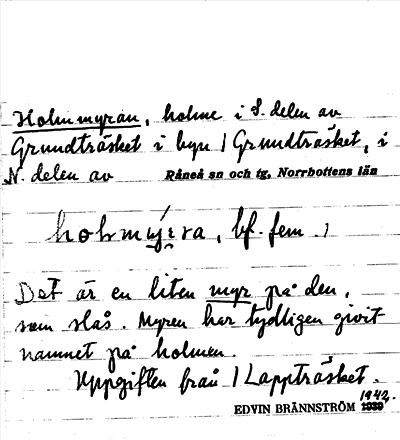 Holmmyran, holme i S. delen av
Grundträsket i byn / Grundträsket, i
N. delen av Råneå sn och tg, Norrbottens län
bf. fem. /
Det är en liten myr på den,
som slås. Myren har tydligen givit
namnet på holmen.
Uppgiften från / Lappträsket.
EDVIN BRÄNNSTRÖM 1939 1942.